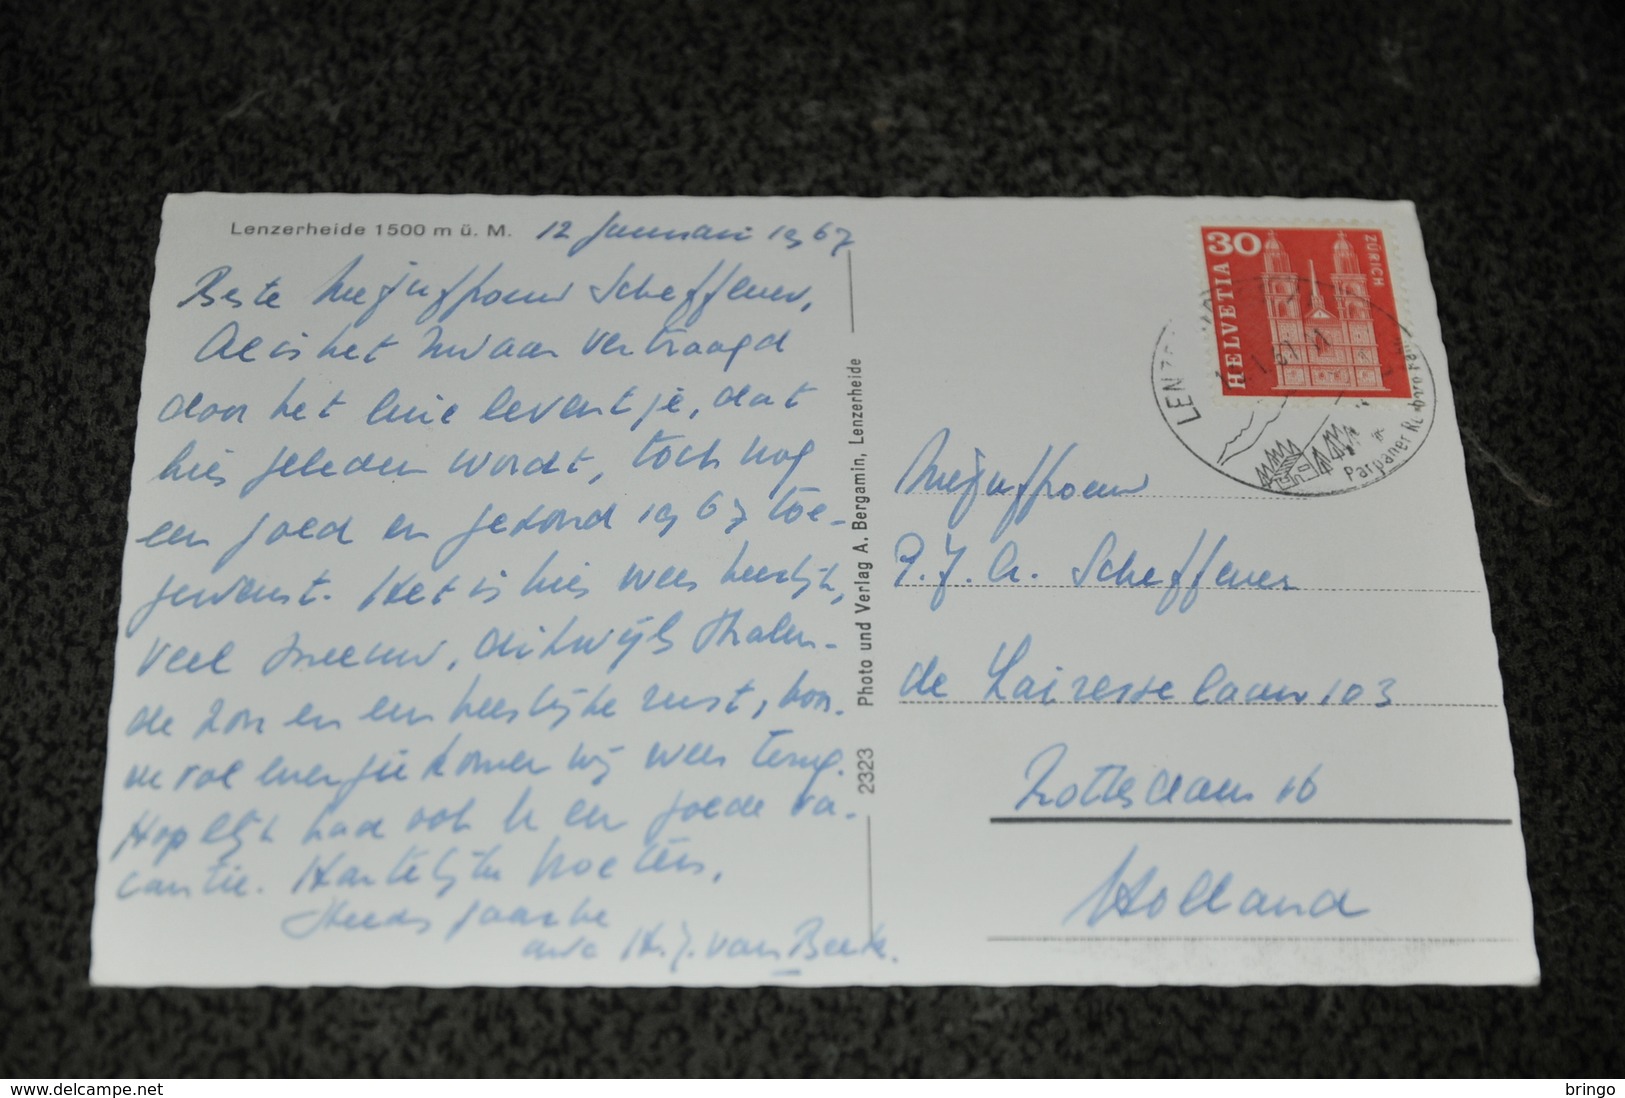 Lenzerheide 1500 m ü. M. 12 Januari 1967
Beste Mejuffrouw Scheffener,
Al is het zwaar vertraagd
door het luie leventje, dat
hier geleden wordt, toch nog
een goed en gezond 1967 toe-
gewenst. Het is hier weer heerlijk,
veel sneeuw, dikwijls stralen-
de zon en een heerlijke rust,
vol energie komen wij weer terug.
Hopelijk had ook U een goede va-
cantie. Hartelijke groeten,
Steeds gaarne
uw H. J. van Beek.
2323 Photo und Verlag A. Bergamin, Lenzerheide
HELVETIA 30 ZÜRICH
LENZ
Parpaner
Mejuffrouw
P. J. A. Scheffener
de Lairesselaan 103
Rotterdam 16
Holland
www.delcampe.net
bringo